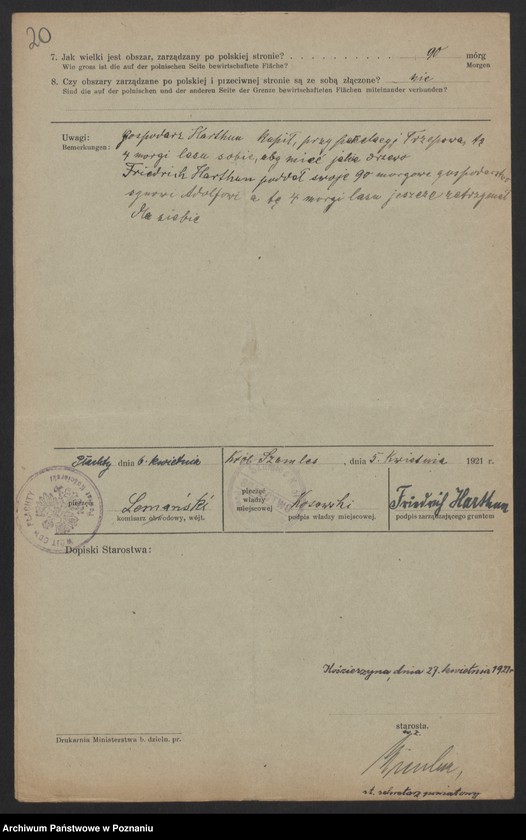 20
7. Jak wielki jest obszar, zarządzany po polskiej stronie? . . . . . . . . . . . 90 mórg
Wie gross ist die auf der polnischen Seite bewirtschaftete Fläche? Morgen
8. Czy obszary zarządzane po polskiej i przeciwnej stronie są ze sobą złączone? nie
Sind die auf der polnischen und der anderen Seite der Grenze bewirtschafteten Flächen miteinander verbunden?
Uwagi: Gospodarz Harthun kupił, przy
Bemerkungen: 4 morgi lasu sobie, aby mieć drzewo
Friedrich Harthun poddał swoje 90 morgowe gospodarstwo
synowi Adolfowi a tę 4 morgi lasu jeszcze zatrzymał
dla siebie
dnia 6 kwietnia
Król. Szamlas, dnia 5. Kwietnia 1921 r.
Lemański
komisarz obwodowy, wójt.
pieczęć
władzy
miejscowej
Kosowski
podpis władzy miejscowej.
Friedrich Harthun
podpis zarządzającego gruntem
Dopiski Starostwa:
Kościerzyna, dnia 27. kwietnia 1921 r
starosta.
wz.
st. sekretarz powiatowy
Drukarnia Ministerstwa b. dzieln. pr.
Archiwum Państwowe w Poznaniu